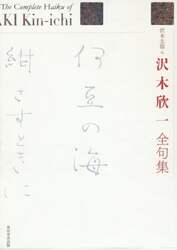 The Complete Haiku of
AKI Kin-ichi
沢木欣一 全句集
伊豆の海
紺さすときに